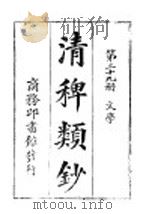 第三十九册 文學
清稗類鈔
商務印書館發行